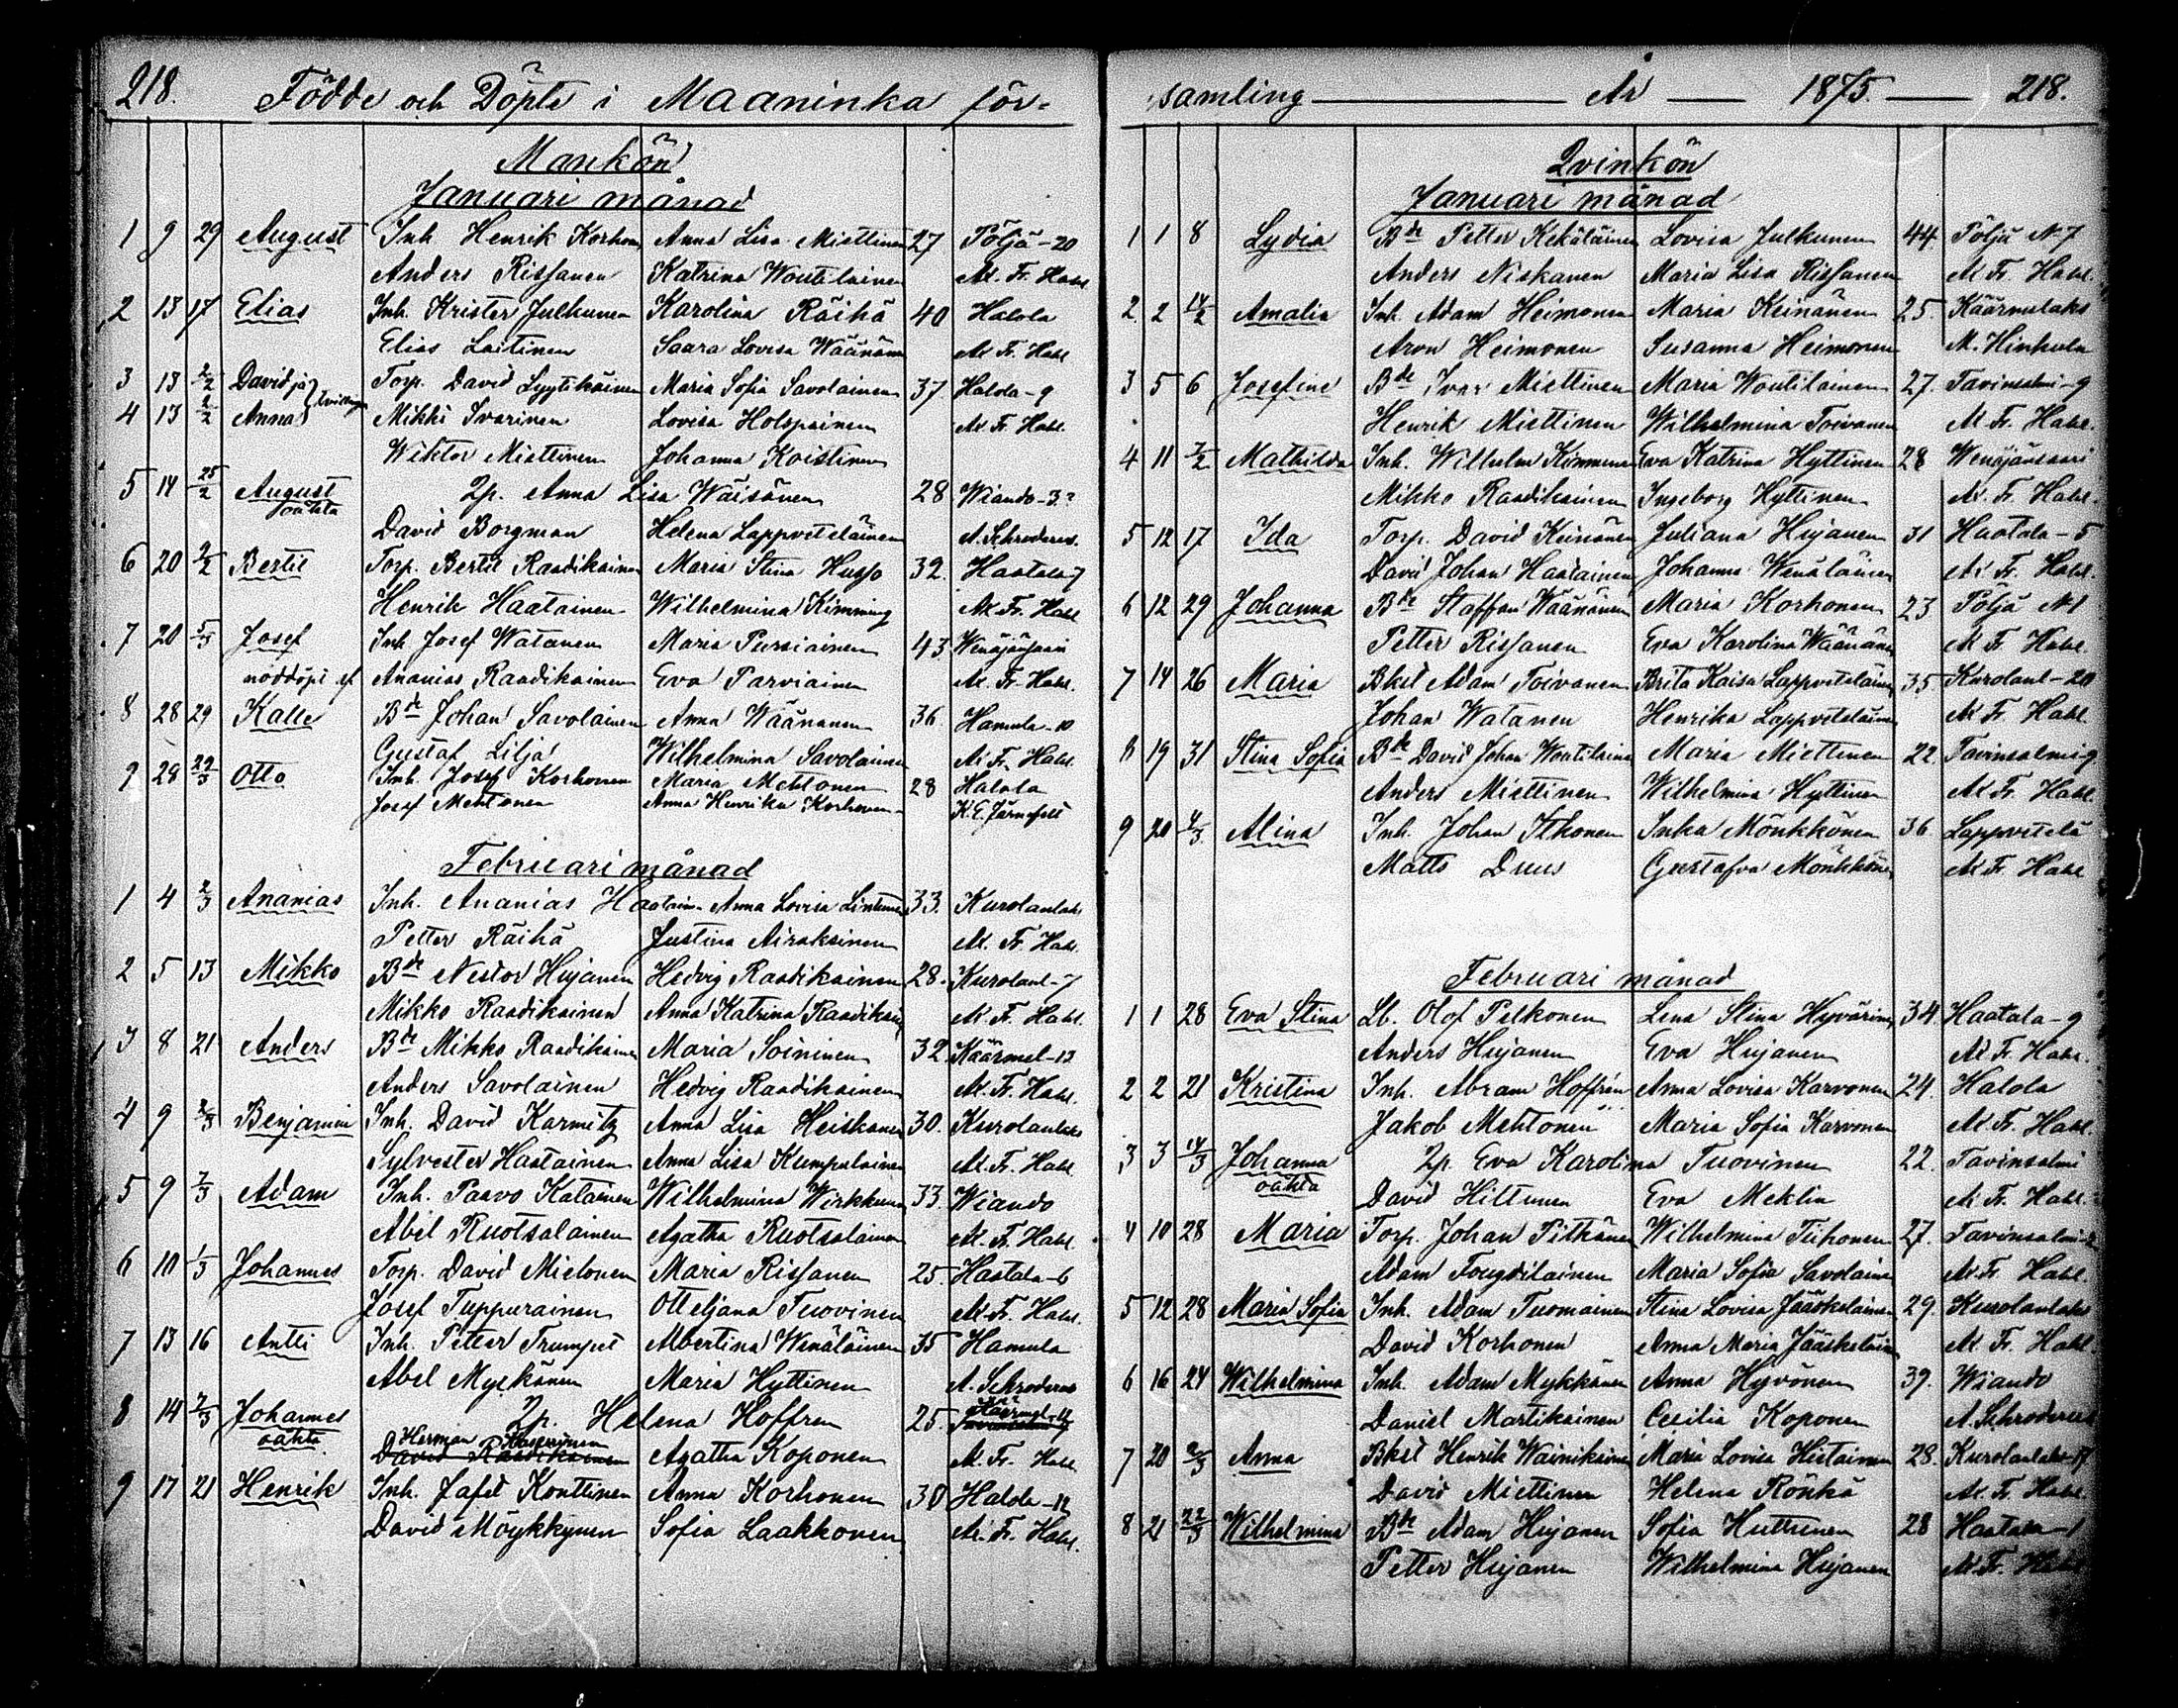 218. Födde och Döpte i Maaninka för-
Mankön
Januari månad
1 9 29 August Inh. Henrik Korhonen Anna Lisa Miettinen 27 Pöljä-20
Anders Rissanen Katrina Woutilainen M. Fr. Hahl
2 13 17 Elias Inh. Krister Julkunen Karolina Räihä 40 Halola
Elias Laitinen Saara Lovisa Wäänänen M. Fr. Hahl
3 13 2/2 David ja Torp. David Lyytikäinen Maria Sofia Savolainen 37 Halola-9
4 13 2/2 Anna Mikki Ivarinen Lovisa Holopainen M. Fr. Hahl.
Wiktor Miettinen Johanna Koistinen
5 14 25/2 August Qp. Anna Lisa Wäisänen 28 Wiando-3
oäkta David Borgman Helena Lappveteläinen A. Schroderus.
6 20 9/2 Bertil Torp. Bertil Raadikainen Maria Stina Husso 32. Haatala-7
Henrik Haatainen Wilhelmina Kimming M. Fr. Hahl
7 20 5/3 Josef Inh. Josef Watanen Maria Pursiainen 43 Wenäjänsaari
nöddöpt af Ananias Raadikainen Eva Parviainen M. Fr. Hahl.
8 28 29 Kalle Bde Johan Savolainen Anna Wäänänen 36. Hamula-10
Gustaf Lilja Wilhelmina Savolainen M. Fr. Hahl.
9 28 29/3 Otto Inh. Josef Korhonen Maria Mehtonen 28 Halola
Josef Mehtonen Anna Henrika Korhonen K. E. Järnefelt
Februari månad
1 4 2/3 Ananias Inh. Ananias Haatain. Anna Lovisa Lintunen 33. Kurolanlaks
Petter Räihä Justina Airaksinen M. Fr. Hahl.
2 5 13 Mikko Bde Nestor Hujanen Hedvig Raadikainen 28. Kurolanl-7
Mikko Raadikainen Anna Katrina Raadikain M. Fr. Hahl.
3 8 21 Anders Bde Mikko Raadikainen Maria Soininen 32 Käärmel-12
Anders Savolainen Hedvig Raadikainen M. Fr. Hahl.
4 9 2/3 Benjamin Inh. David Karmitz Anna Lisa Heiskanen 30. Kurolanlaks
Sylvester Haatainen Anna Lisa Kumpulainen M. Fr. Hahl
5 9 7/3 Adam Inh. Paavo Katainen Wilhelmina Wirkkunen 33. Wiando
Abel Ruotsalainen Agatha Ruotsalainen M. Fr. Hahl.
6 10 1/3 Johannes Torp. David Mielonen Maria Rissanen 25. Haatala-6
Josef Tuppurainen Otteljana Tuovinen M. Fr. Hahl.
7 13 16 Antti Inh. Petter Trumpet Albertina Wenäläinen 35 Hamula
Abel Myckänen Maria Hyttinen A. Schroderus
8 14 7/3 Johannes Qp. Helena Hoffren 25. Käärmel-12
oäkta Herman David Raadikainen Agatha Koponen M. Fr. Hahl.
9 17 21 Henrik Inh. Jafet Konttinen Anna Korhonen 30 Halola-12
David Möykkynen Sofia Laakkonen M. Fr. Hahl.
samling År 1875. 218.
Qvinkön
Januari månad
1 1 8 Lydia Bde Petter Kekäläinen Lovisa Julkunen 44 Pöljä N 7
Anders Niskanen Maria Lisa Rissanen M. Fr. Hahl.
2. 2 14/2 Amalia Inh. Adam Heimonen Maria Keinänen 25. Käärmelaks
Aron Heimonen Susanna Heimonen M. Hinkula
3 5 6 Josefine Bde Ivar Miettinen Maria Woutilainen 27. Tavinsalmi-9
Henrik Miettinen Wilhelmina Toivanen M. Fr. Hahl.
4 11 7/2 Mathilda Inh. Wilhelm Kimmunen Eva Katrina Hyttinen 28 Wenäjänsaari
Mikko Raadikainen Ingeborg Hyttinen M. Fr. Hahl.
5 12 17 Ida Torp. David Keinänen Juliana Hujanen 31 Haatala-5
David Johan Haatainen Johanna Wenäläinen M. Fr. Hahl.
6 12 29 Johanna Bde Staffan Wäänänen Maria Korhonen 23 Pöljä N1
Petter Rissanen Eva Karolina Wäänänen M. Fr. Hahl.
7 14 26 Maria Bkst Adam Toivanen Brita Kaisa Lappveteläinen 35 Kurolanl-20
Johan Watanen Henrika Lappveteläinen M. Fr. Hahl.
8 19 31 Stina Sofia Bde David Johan Woutilainen Maria Miettinen 22. Tavinsalmi-9
Anders Miettinen Wilhelmina Hyttinen M. Fr. Hahl.
9 20 4/3 Alina Inh. Johan Itkonen Inka Mönkkönen 36 Lappvetelä
Matts Duus Gustafva Mönkkönen M. Fr. Hahl
Februari månad
1 1 28 Eva Stina Lb. Olof Pelkonen Lena Stina Hyvärinen 34. Haatala-9
Anders Hujanen Eva Hujanen M. Fr. Hahl.
2 2 21 Kristina Inh. Abram Hoffrén Anna Lovisa Karvonen 24. Halola
Jakob Mehtonen Maria Sofia Karvonen M. Fr. Hahl.
3 3 14/3 Johanna Qp. Eva Karolina Tuovinen 22. Tavinsalmi
oäkta David Hittunen Eva Meklin M. Fr. Hahl.
4 10 28 Maria Torp. Johan Pitkänen Wilhelmina Tiihonen 27. Tavinsalmi-
Adam Fougdilainen Maria Sofia Savolainen M. Fr. Hahl.
5 12 28 Maria Sofia Inh. Adam Tuomainen Stina Lovisa Jääskeläinen 29. Kurolanlaks
David Korhonen Anna Maria Jääskeläin M. Fr. Hahl.
6 16 24 Wilhelmina Inh. Adam Mykkänen Anna Hyvönen 39. Wiando
Daniel Martikainen Cecilia Koponen A. Schroderus
7 20 2/3 Anna Bkst Henrik Wainikainen Maria Lovisa Hietainen 28. Kurolanlaks-17
David Miettinen Helena Rönkä M. Fr. Hahl.
8 21 22/3 Wilhelmina Bde Adam Hujanen Sofia Huttunen 28 Haatala-1
Petter Hujanen Wilhelmina Hujanen M. Fr. Hahl